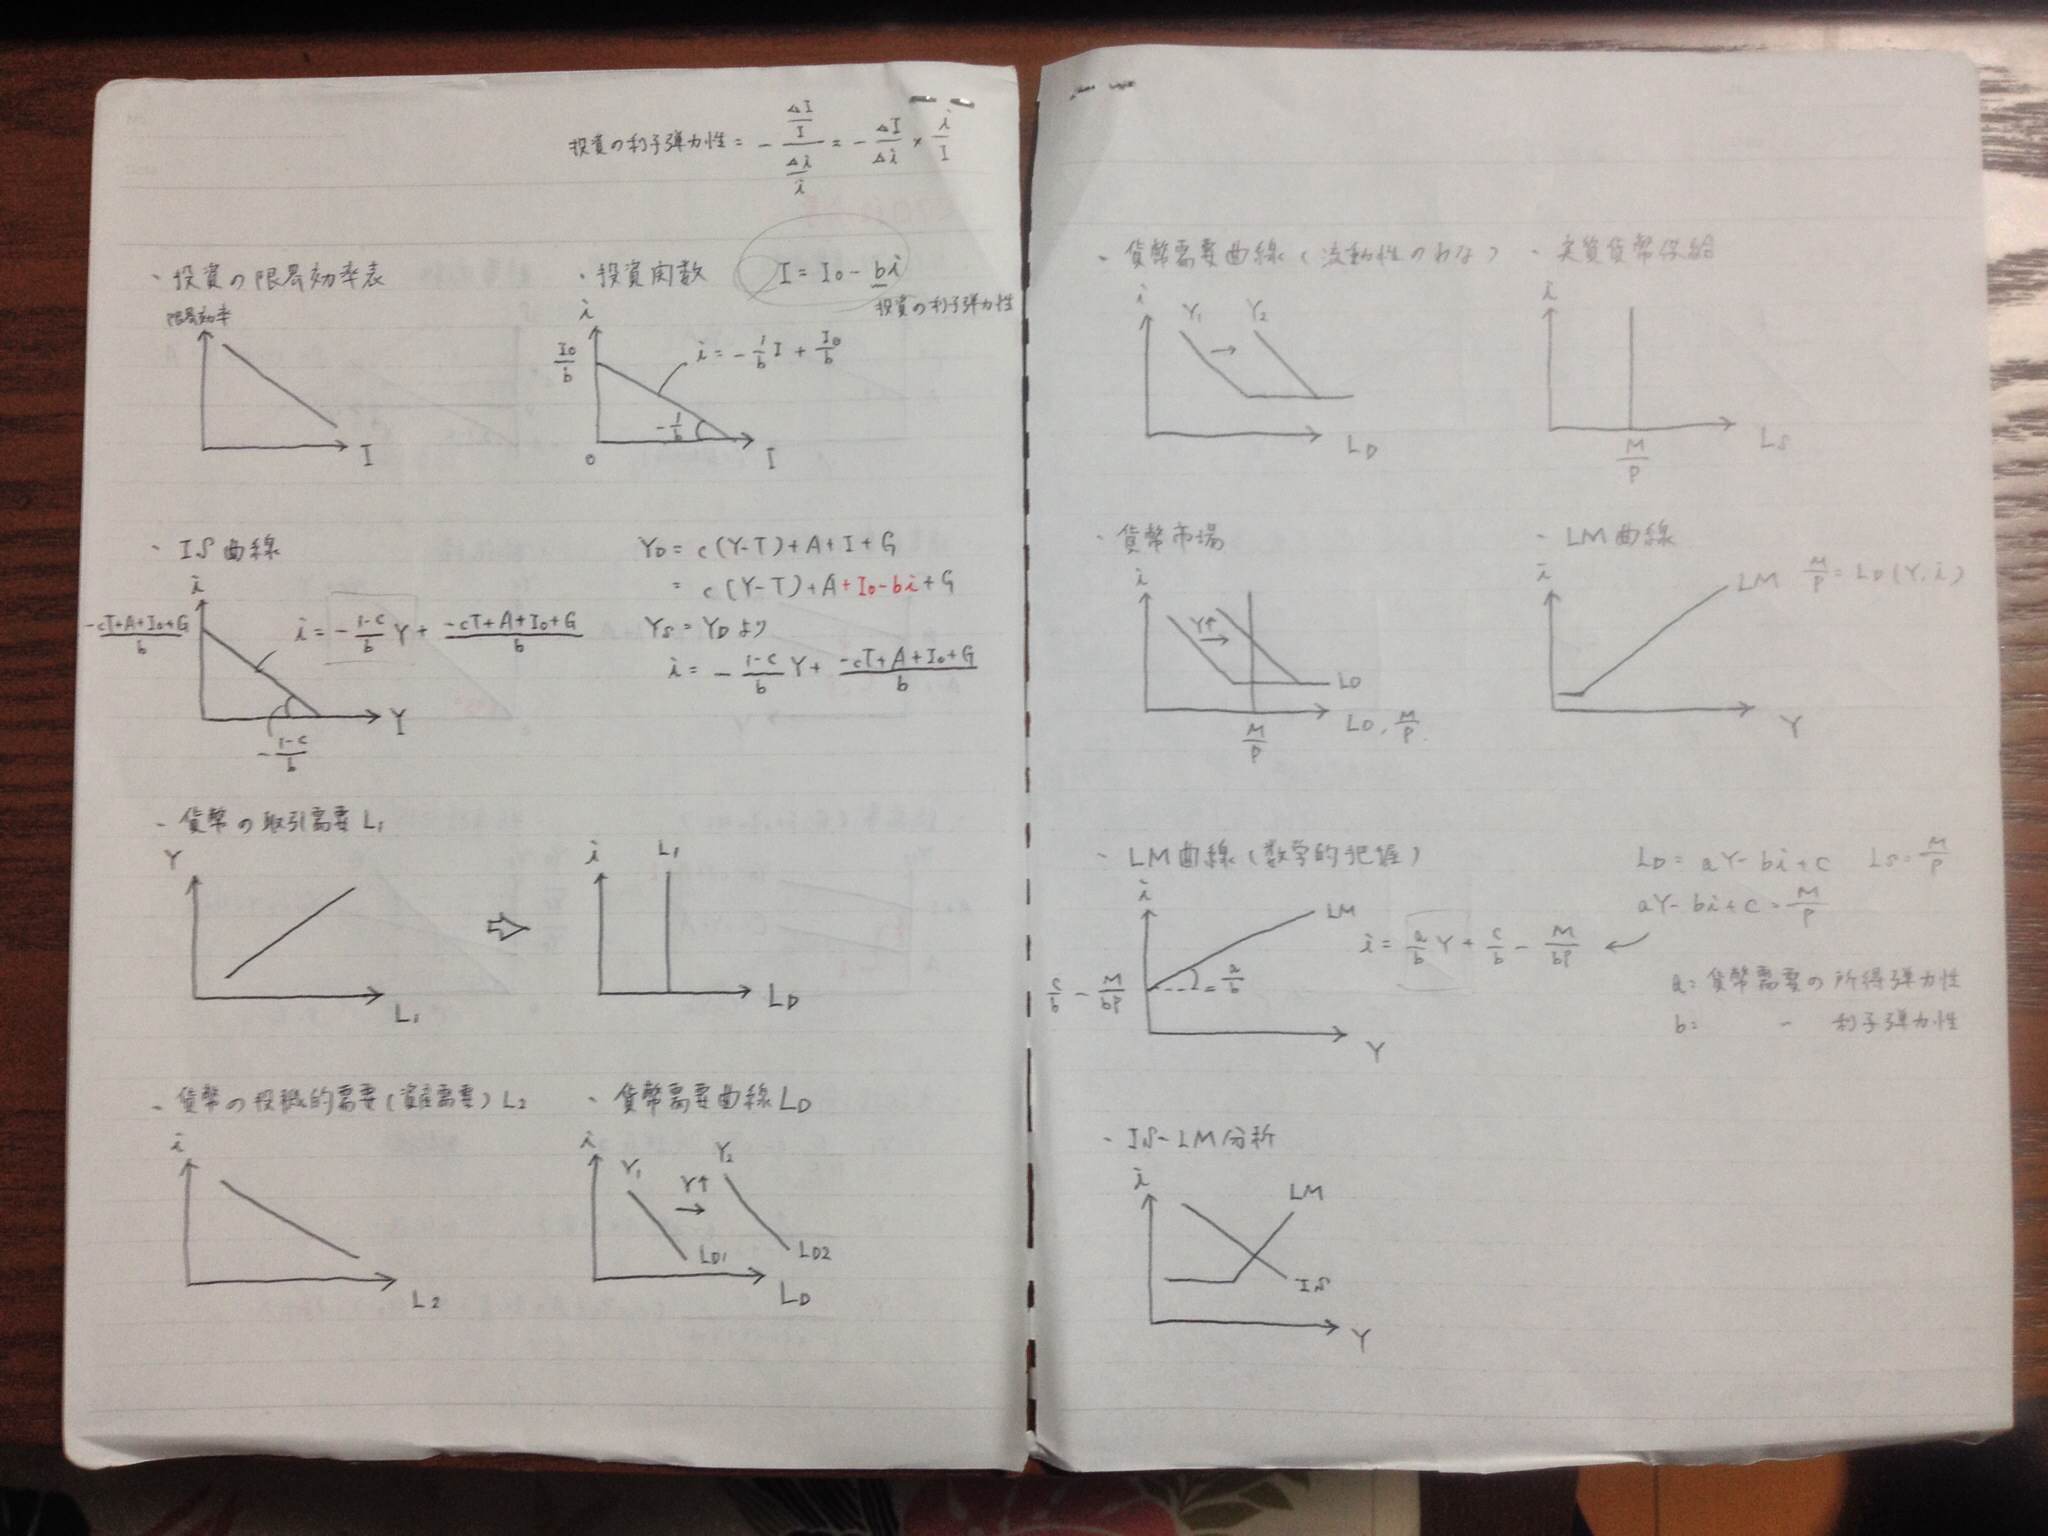 投資の利子弾力性 = - (ΔI/I)/(Δi/i) = - ΔI/Δi × i/I
・投資の限界効率表
限界効率
I
・投資関数 I = I₀ - bi
投資の利子弾力性
i
I₀/b
i = - 1/b I + I₀/b
- 1/b
0
I
・IS曲線
i
-cT+A+I₀+G/b
i = - 1-c/b Y + -cT+A+I₀+G/b
Y
- 1-c/b
YD = c(Y-T)+A+I+G
= c(Y-T)+A+I₀-bi+G
YS = YDより
i = - 1-c/b Y + -cT+A+I₀+G/b
・貨幣の取引需要 L₁
Y
L₁
⇨
i
L₁
LD
・貨幣の投機的需要(資産需要) L₂
i
L₂
・貨幣需要曲線 LD
i
Y₁
Y↑
→
Y₂
LD1
LD2
LD
・貨幣需要曲線(流動性のわな)
i
Y₁
→
Y₂
LD
・実質貨幣供給
i
M/P
LS
・貨幣市場
i
Y↑
→
LD
M/P
LD, M/P
・LM曲線
i
LM M/P = LD(Y, i)
Y
・LM曲線(数学的把握)
i
LM
i = a/b Y + c/b - M/bP
c/b - M/bP
= a/b
Y
LD = aY - bi + c LS = M/P
aY - bi + c = M/P
a: 貨幣需要の所得弾力性
b: 〃 利子弾力性
・IS-LM分析
i
LM
IS
Y